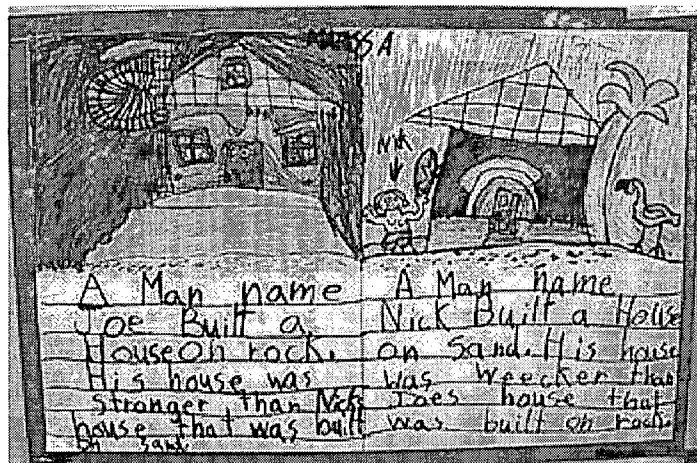 A Man name
Joe Built a
House on rock.
His house was
stronger than Nick
house that was built
on sand
NiK
A Man name
Nick Built a House
on Sand. His house
was weecker than
Joes house that
was built on rock.